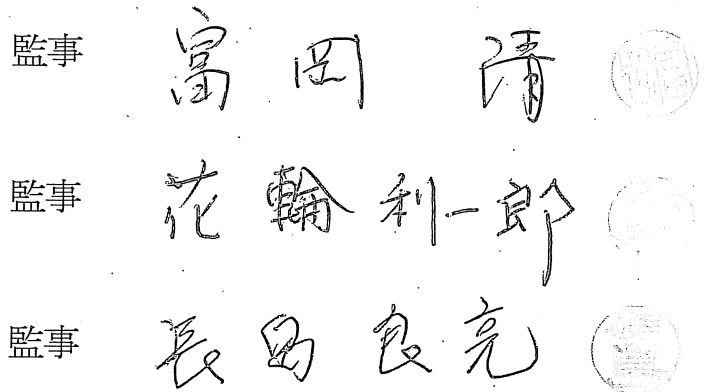 監事 富岡 清
監事 花輪利一郎
監事 長島良亮